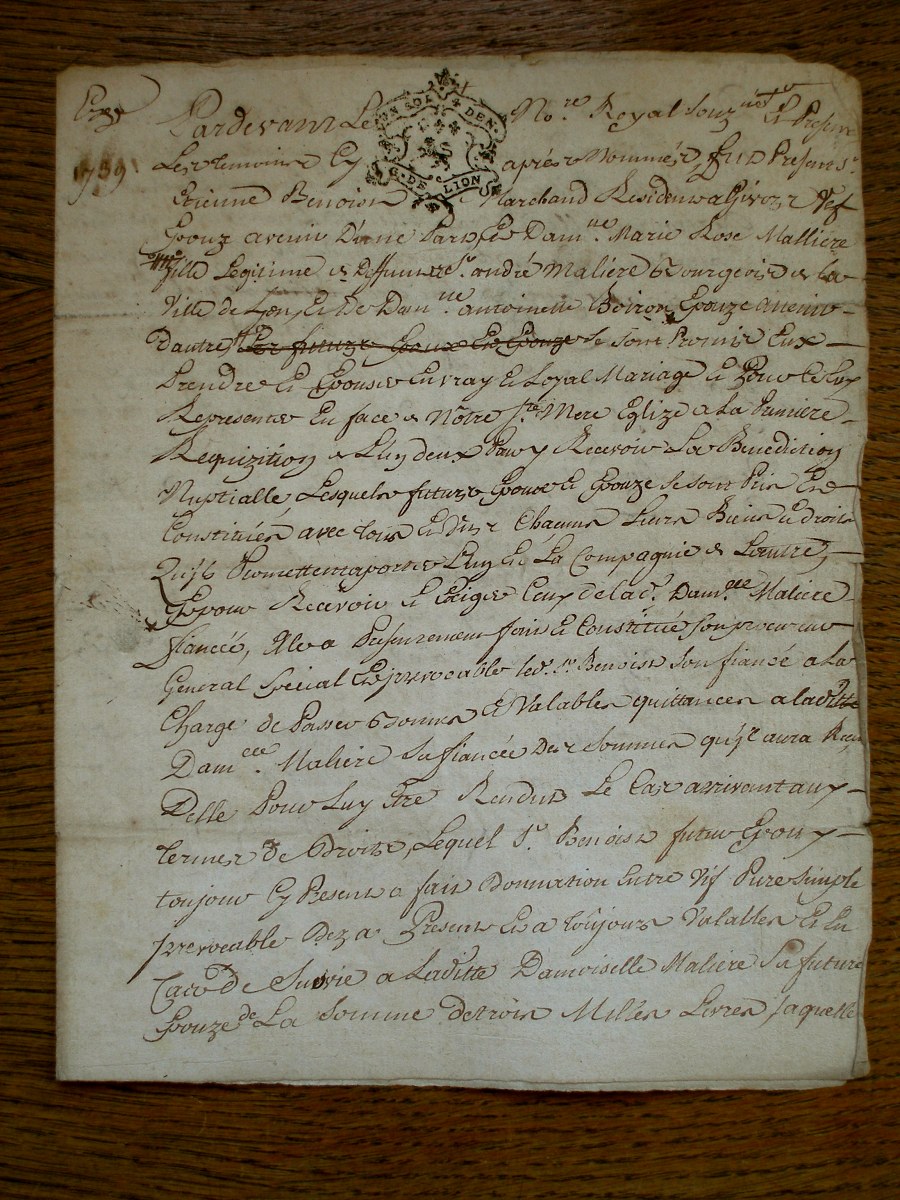 1739
Pardevant Le No.re Royal Souz.né Et Presents
UN SOL DEN.
G. DE LION
Les temoins Cy aprés Nommés, fut Present S.r
Etienne Benoist Marchand Resident a Givors Vef
Epouz avenir D'une Part, Et Dam.lle Marie Rose Malliere
fille Legitime de Deffunt S.r andré Maliere Bourgeois de la
Ville de Lyon, Et De Dam.lle antoinette Boiron Epouze avenir
Dautre, Les futurs Epoux Et Epouze Se sont Promis Eux
Prendre Et Epouser En vray Et Loyal Mariage Et Pour Cel
Representer En face de Nôtre S.te Mere Eglize a La Premiere
Requizition de L'un deux Pour y Recevoir La Benediction
Nuptialle Lesquels futurs Epoux Et Epouze Se sont Pris Et
Constitués avec tous Et Uns Chacuns Leurs Biens Et droits
Quils Promettent aporter L'un En La Compagnie de L'autre,
Et pour Recevoir Et Exiger Ceux de la d. Dam.lle Maliere
fiancéé, Elle a Presentement fait Et Constitué Son procureur
General Special Et jrrevocable led. S.r Benoist Son fiancé a La
Charge de Passer Bonnes Et Valables quittances a laditte
Dam.lle Maliere Sa fiancée Des Sommes qu'jl aura Receu
Delle Pour Luy Etre Rendus Le Cas arrivant aux
termes de Droits, Lequel S.r Benoist futur Epoux
toujour Cy Present a fait Donnation Entre Vif Pure Simple
jrrevocable Dez a Present Et a toujours Valables Et En
Cas de Survie a Laditte Damoiselle Maliere Sa future
Epouze de La Somme de trois Milles Livres laquelle